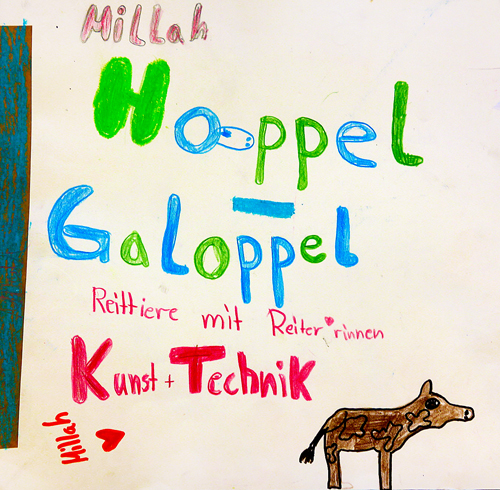 Millah
Hoppel
-
Galoppel
Reittiere mit Reiter*rinnen
Kunst + Technik
Millah